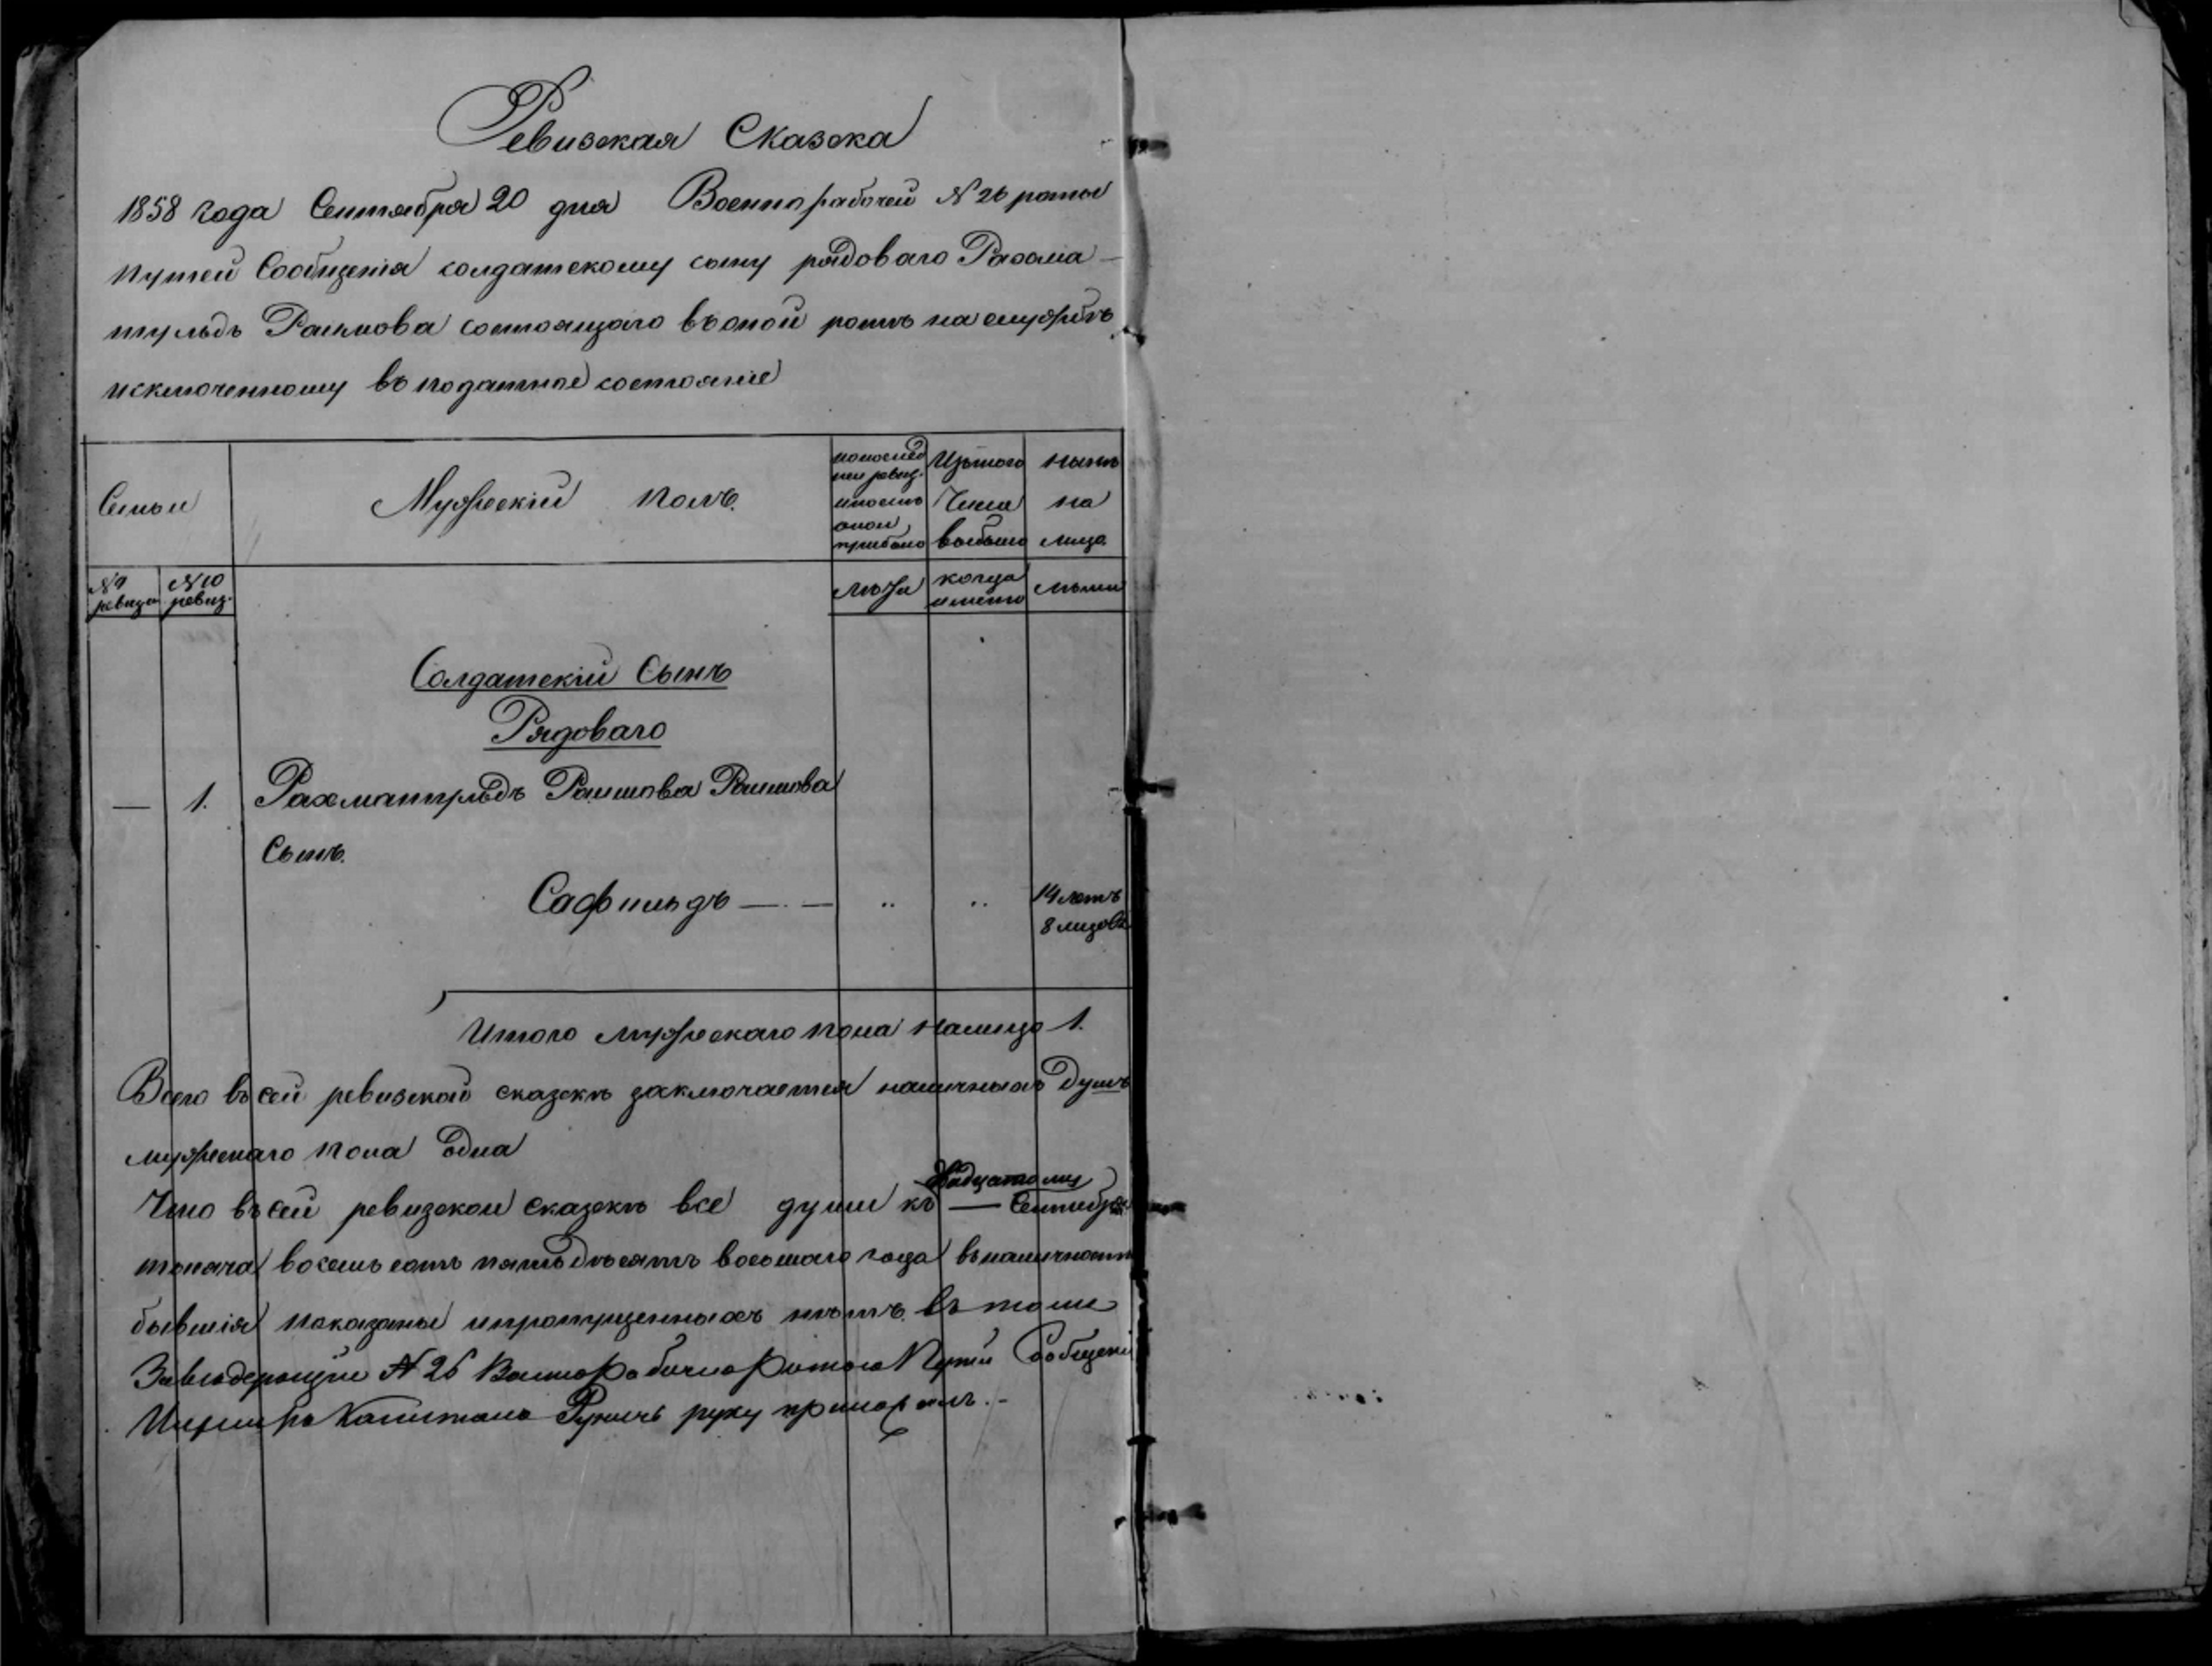 Ревизская Сказска
1858 года Сентября 20 дня Военнорабочей № 26 роты
путей Сообщенія солдатскому сыну рядоваго Рахма-
тульдъ Раимова состоящаго въ оной ротѣ на службѣ
исключенному въ податное состояніе
Семьи
Мужескій полъ.
по послед
ней ревиз.
и после
оной
прибыло
Изъ того
Числа
выбыло
нынѣ
на
лицо
№ 9
ревизи
№ 10
ревиз.
лѣта
когда
имянно
лѣты
Солдатскій Сынъ
Рядоваго
— 1. Рахматульдъ Раимова Раимова
Сынъ.
14 летъ
8 месяцов
Итого мужескаго пола налицо 1.
Всего въ сей ревизской сказскѣ заключается наличныхъ Душъ
мужескаго пола Одна
двадцатому
Что въ сей ревизской сказскѣ все души къ — Сентября
тысяча восемь сотъ пятьдесятъ восьмаго года въ наличности
бывшія показаны и пропущенныхъ нѣтъ. въ томъ
Завѣдующій № 26 Военно Рабочею Ротою Путей Сообщенія
Инженеръ Капитанъ руку приложилъ.-